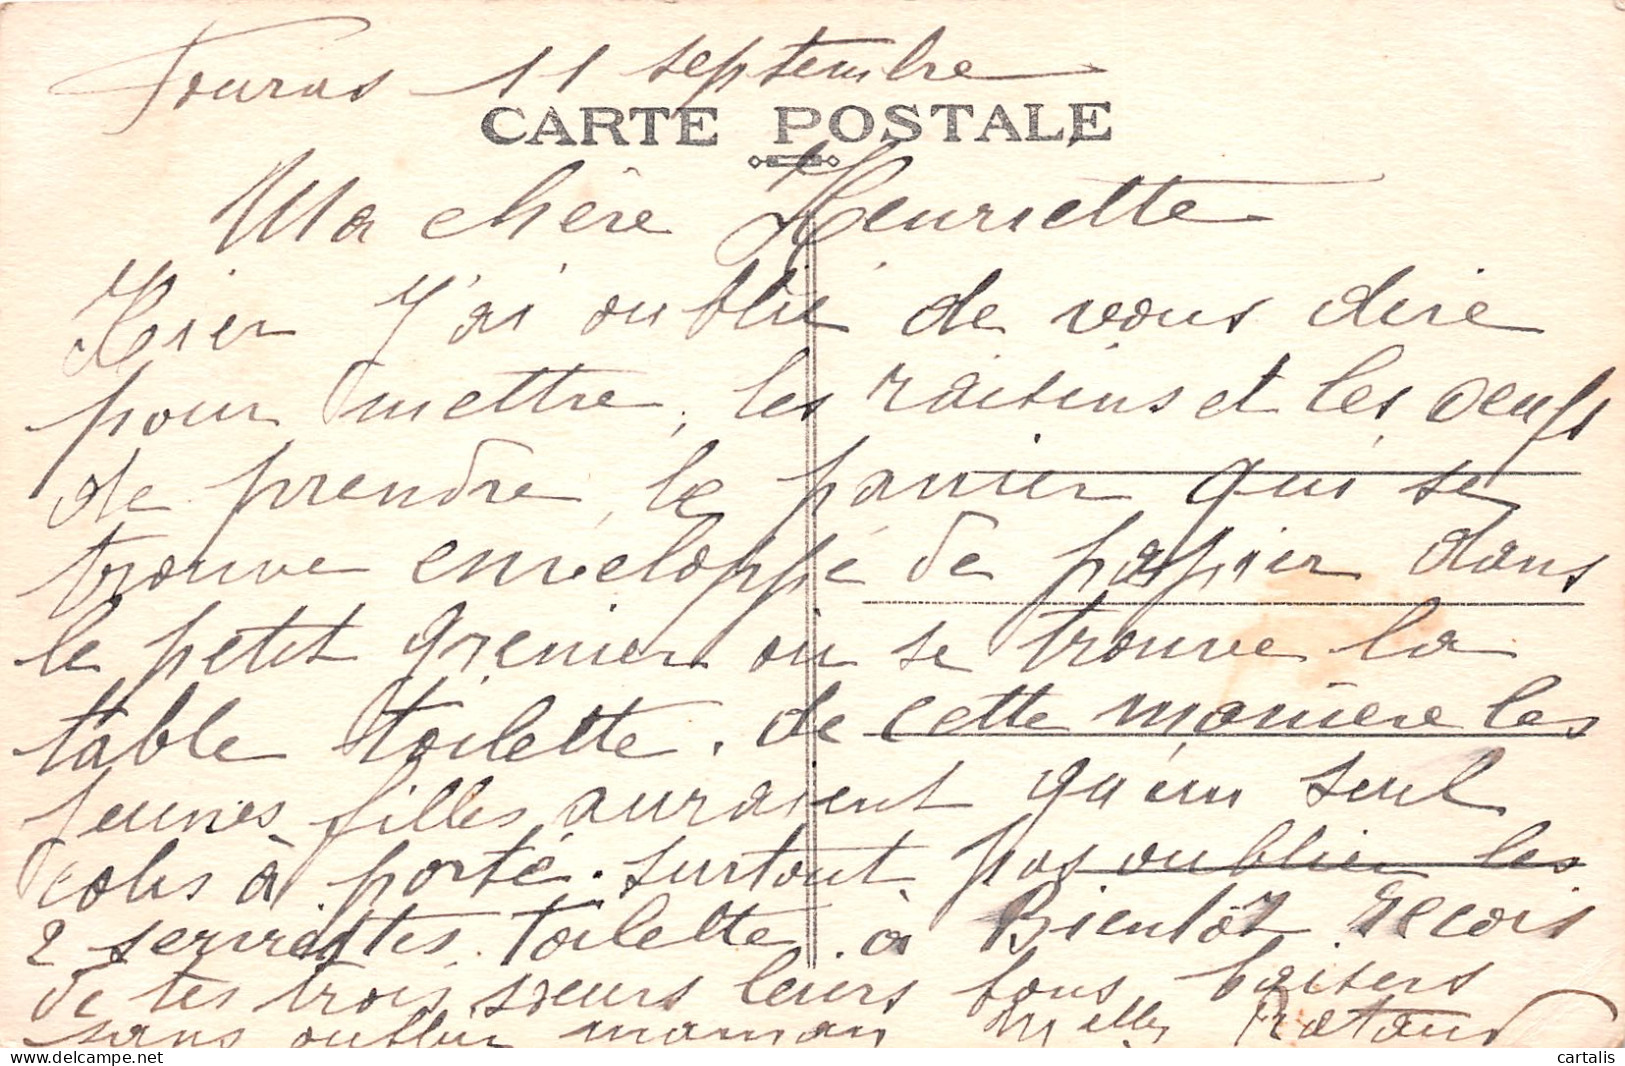 Fouras 11 septembre
CARTE POSTALE
Ma chère Henriette
Hier j'ai oublié de vous dire
pour mettre, les raisins et les oeufs
de prendre, le panier qui se
trouve enveloppé de papier dans
le petit grenier où se trouve la
table toilette. de cette manière les
jeunes filles auraient qu'un seul
colis à porté. surtout pas oublier les
2 serviettes toilette. à Bientôt reçois
de tes trois soeurs leurs bons baisers
sans oublier maman Melles
cartalis